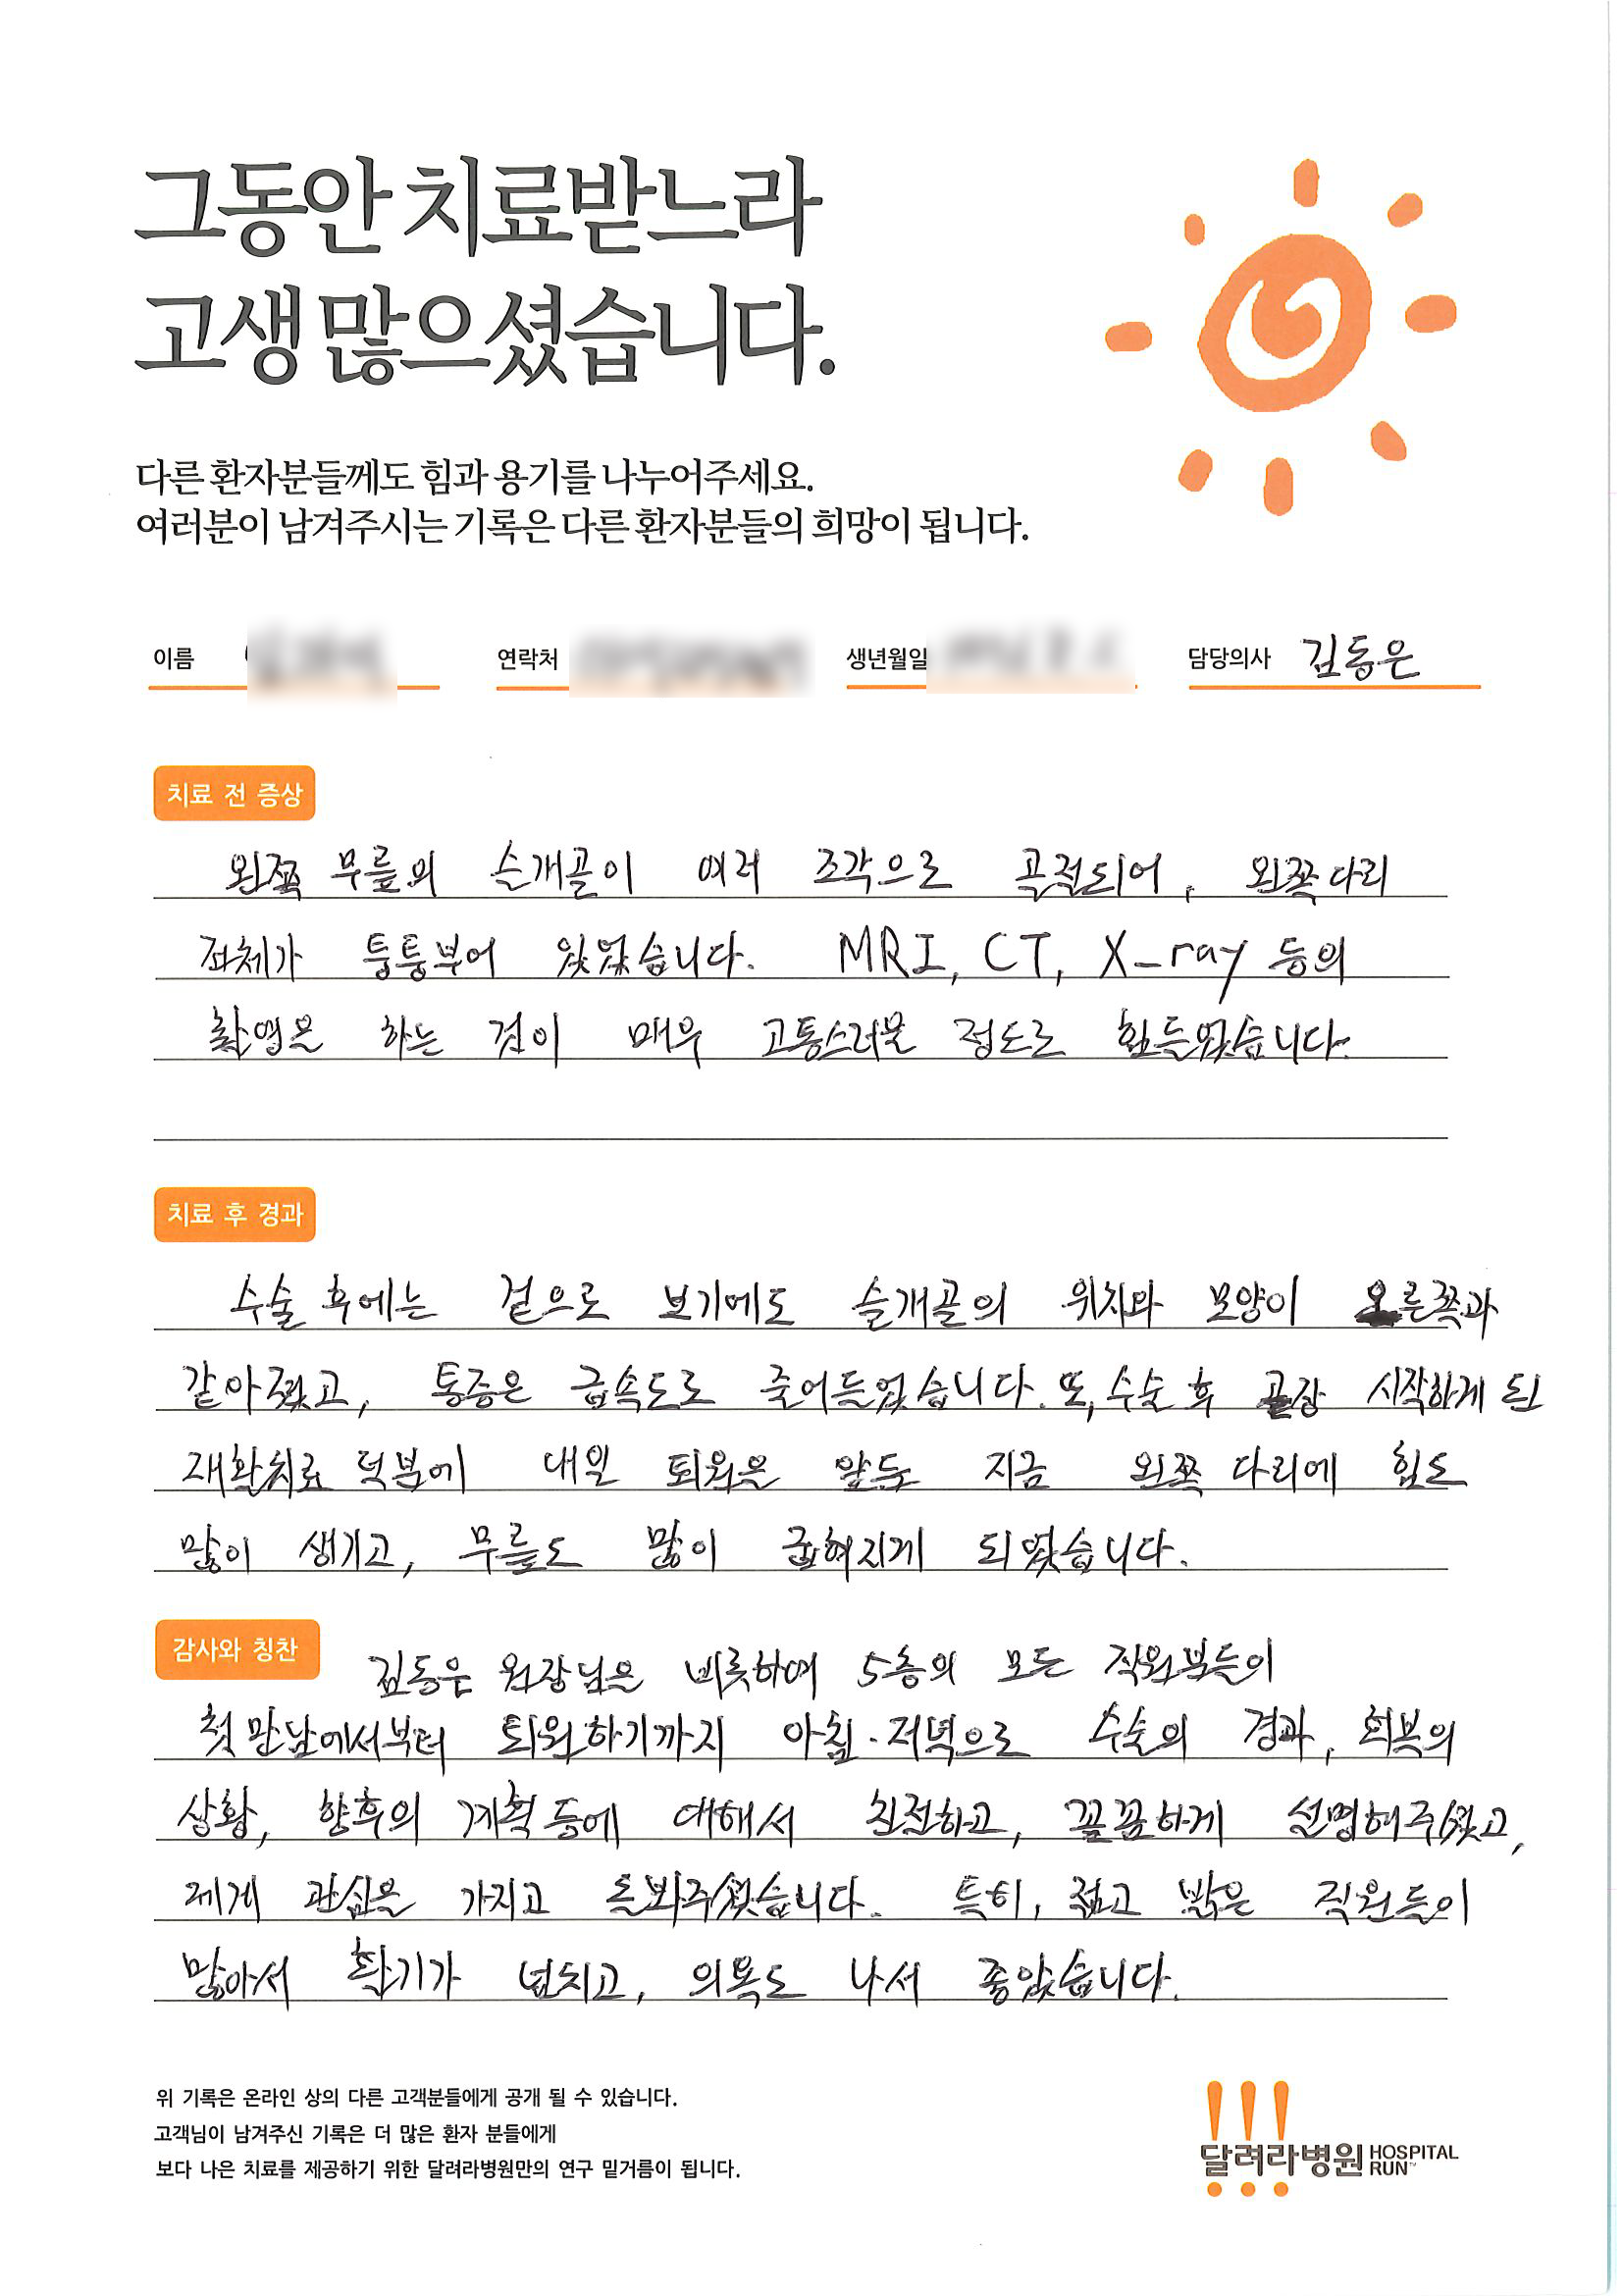 그동안 치료받느라
고생 많으셨습니다.
다른 환자분들께도 힘과 용기를 나누어주세요.
여러분이 남겨주시는 기록은 다른 환자분들의 희망이 됩니다.
이름 연락처 생년월일 담당의사 김동은
치료 전 증상
왼쪽 무릎의 슬개골이 여러 조각으로 골절되어, 왼쪽다리
전체가 퉁퉁부어 있었습니다. MRI, CT, X-ray 등의
촬영을 하는 것이 매우 고통스러울 정도로 힘들었습니다.
치료 후 경과
수술 후에는 겉으로 보기에도 슬개골의 위치와 모양이 오른쪽과
같아졌고, 통증은 급속도로 줄어들었습니다. 또, 수술 후 곧장 시작하게 된
재활치료 덕분에 내일 퇴원을 앞둔 지금 왼쪽 다리에 힘도
많이 생기고, 무릎도 많이 굽혀지게 되었습니다.
감사와 칭찬 김동은 원장님을 비롯하여 5층의 모든 직원분들이
첫 만남에서부터 퇴원하기까지 아침·저녁으로 수술의 경과, 회복의
상황, 향후의 계획 등에 대해서 친절하고, 꼼꼼하게 설명해주셨고,
제게 관심을 가지고 돌봐주셨습니다. 특히, 젊고 밝은 직원들이
많아서 활기가 넘치고, 의욕도 나서 좋았습니다.
위 기록은 온라인 상의 다른 고객분들에게 공개 될 수 있습니다.
고객님이 남겨주신 기록은 더 많은 환자 분들에게
보다 나은 치료를 제공하기 위한 달려라병원만의 연구 밑거름이 됩니다.
달려라병원 HOSPITAL RUN™